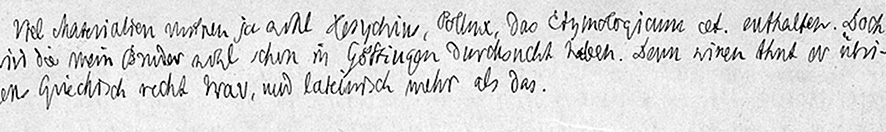 Viel Materialien müssen ja wohl Hesychius, Pollux, das Etymologicum cet. enthalten. Doch
wird die mein Bruder wohl schon in Göttingen durchsucht haben. Denn thut er übri-
Griechisch recht brav, und lateinisch mehr als das.